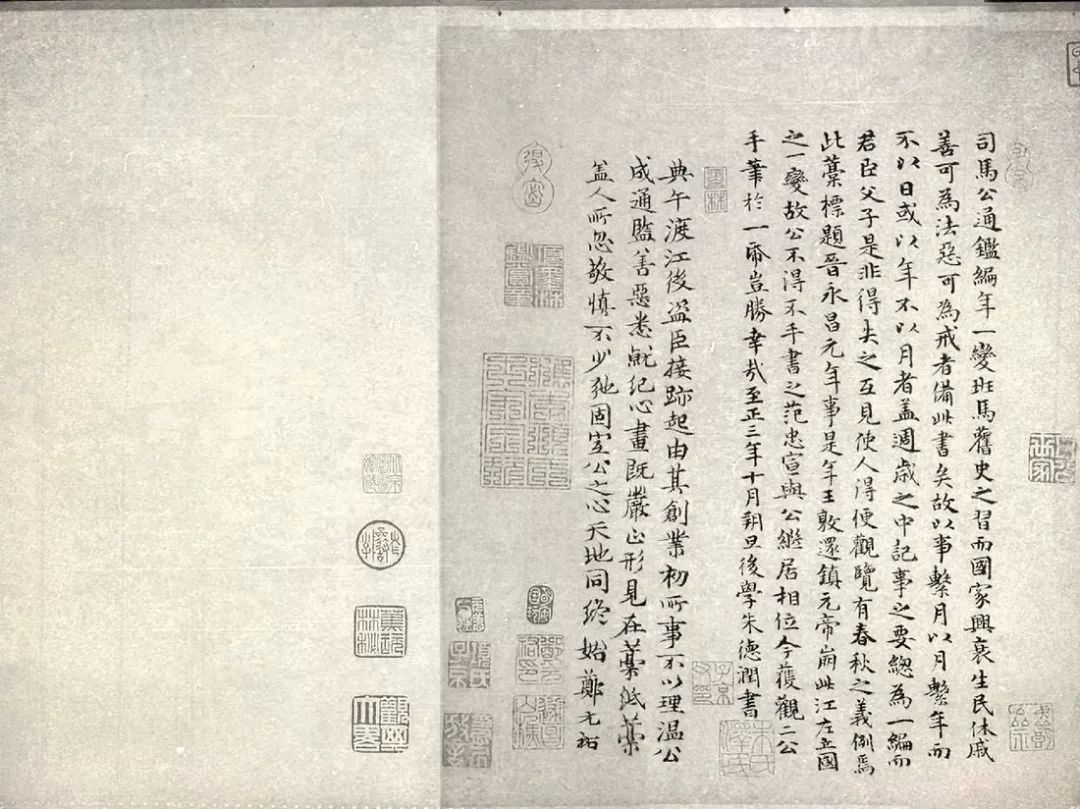 司馬公通鑑編年一變班馬舊史之習而國家興衰生民休戚
善可為法惡可為戒者備此書矣故以事繫月以月繫年而
不以日或以年不以月者盖週歲之中記事之要總為一編而
君臣父子是非得失之互見使人得便觀覽有春秋之義例焉
此藁標題晉永昌元年事是年王敦還鎮元帝崩此江左立國
之一變故公不得不手書之范忠宣與公繼居相位今獲觀二公
手筆於一帋豈勝幸哉至正三年十月朔旦後學朱德潤書
典午渡江後盗臣接跡起由其創業初所事不以理溫公
成通監善惡悉就紀心畫既嚴正形見在藁泜藁
盖人所忽敬慎不少弛固宜公之心天地同終始鄭元祐